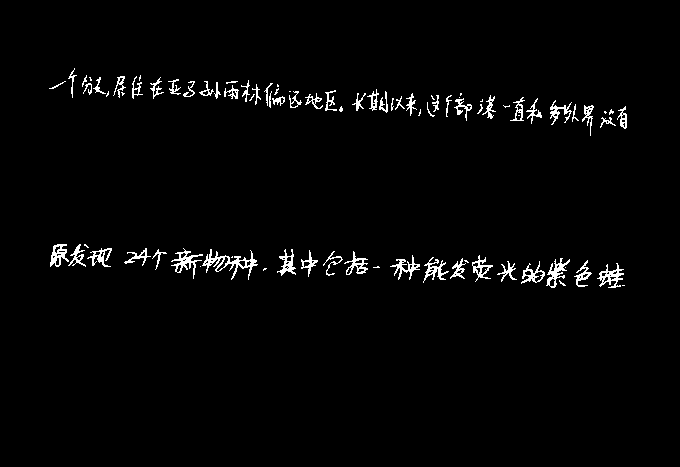 一个分支,居住在亚马孙雨林偏远地区。长期以来,这个部落一直和外界没有
原发现24个新物种.其中包括一种能发荧光的紫色蛙